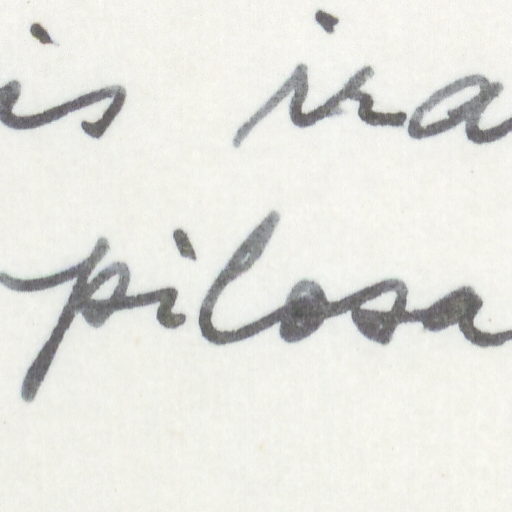 is iva
pilosa